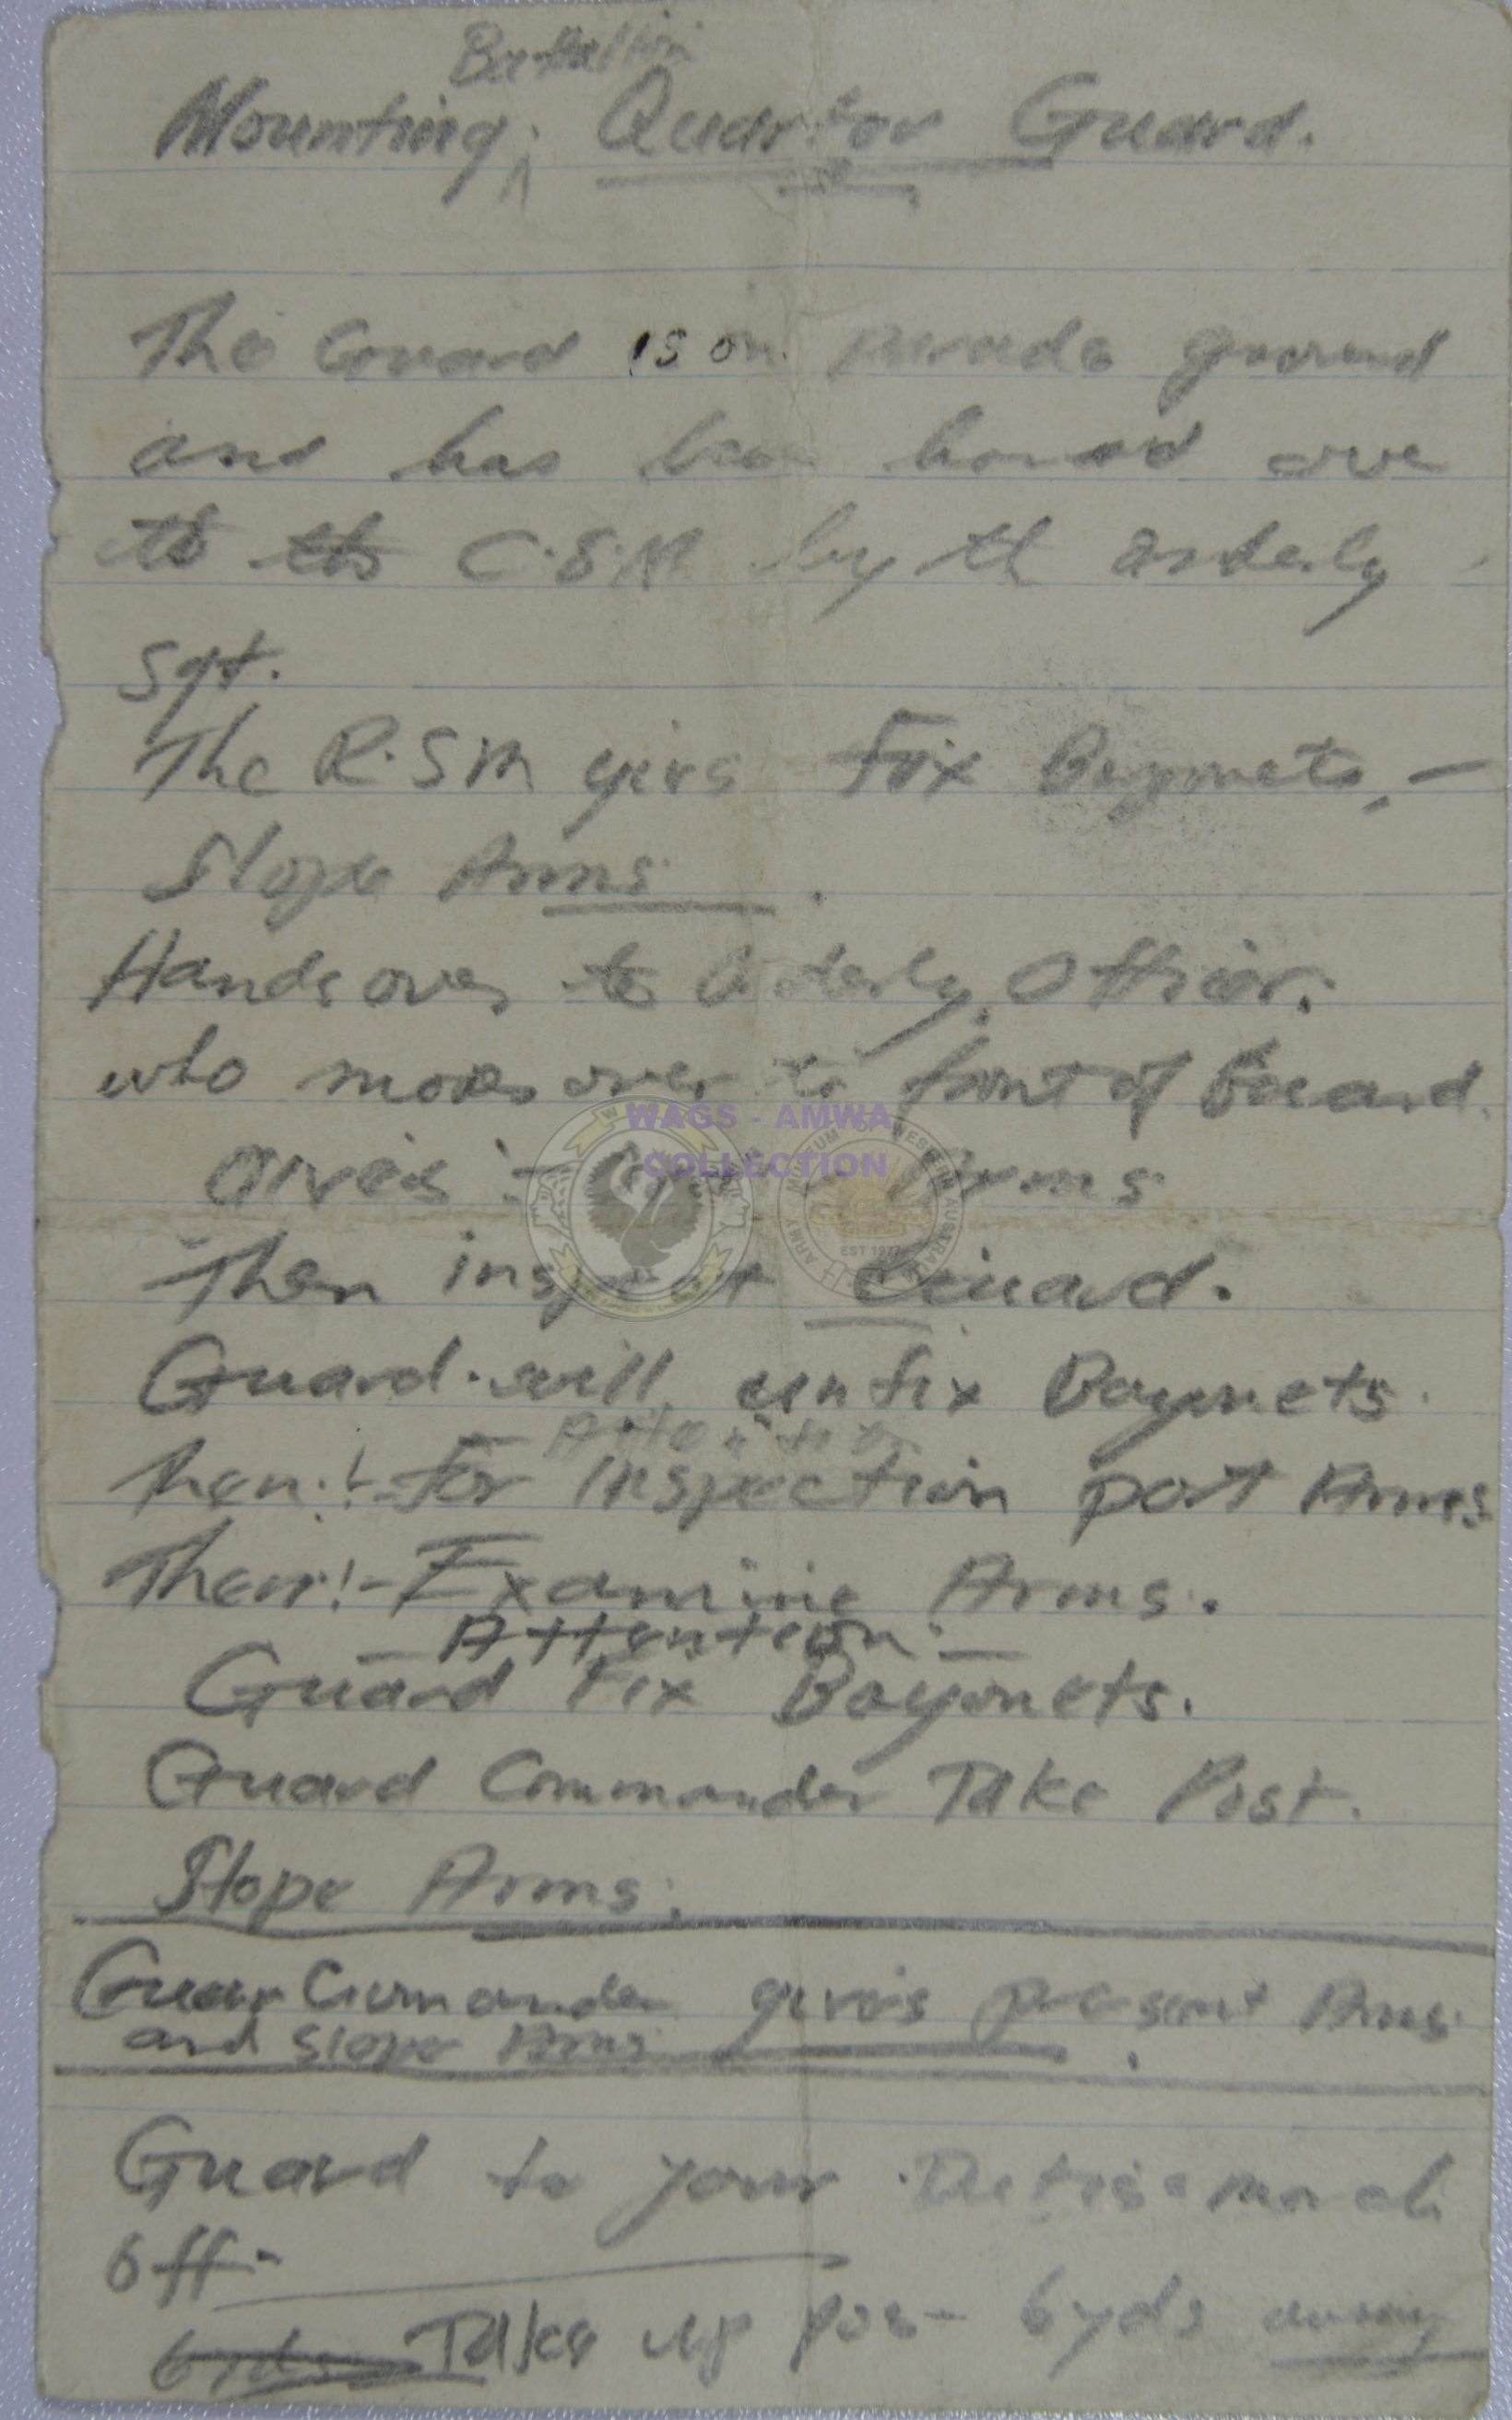 Battalion
Mounting Quarter Guard.
The Guard is on parade ground
and has been hand over
to the C.S.M by th orderly
Sgt.
The R.S.M gives Fix Bayonets, -
Slope Arms.
Hands over to Orderly Officer.
who moves over to front of Guard.
Gives :- Arms
Then inspect Guard.
Guard will unfix Bayonets.
- Attention
Then :- For inspection port Arms
Then :- Examine Arms.
- Attention. -
Guard Fix Bayonets.
Guard Commander Take Post.
Slope Arms.
Guard Commander gives present Arms.
and Slope Arms.
Guard to your Duties march
off -
6 yds Take up pos - 6 yds away
WAGS - AMWA
COLLECTION
ARMY MUSEUM OF WESTERN AUSTRALIA
EST 1977